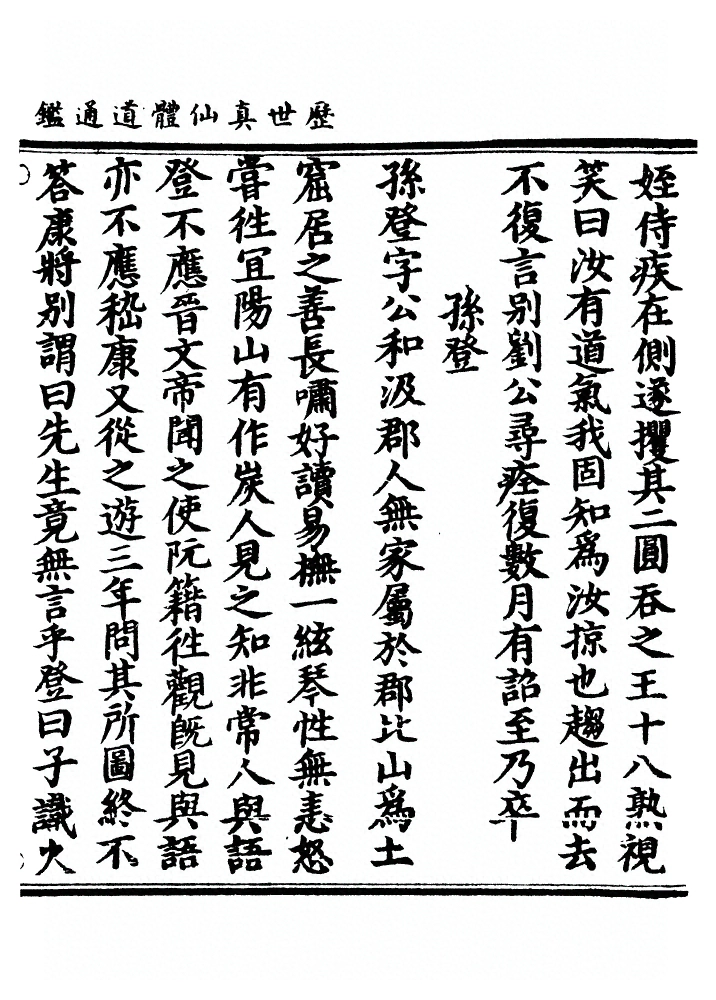 歷世真仙體道通鑑
姪侍疾在側遂攫其二圓吞之王十八熟視
笑曰汝有道氣我固知爲汝掠也趨出而去
不復言別劉公尋痊復數月有詔至乃卒
孫登
孫登字公和汲郡人無家屬於郡北山爲土
窟居之善長嘯好讀易撫一絃琴性無恚怒
嘗徃宜陽山有作炭人見之知非常人與語
登不應晉文帝聞之使阮籍徃觀旣見與語
亦不應嵇康又從之遊三年問其所圖終不
答康將別謂曰先生竟無言乎登曰子識火